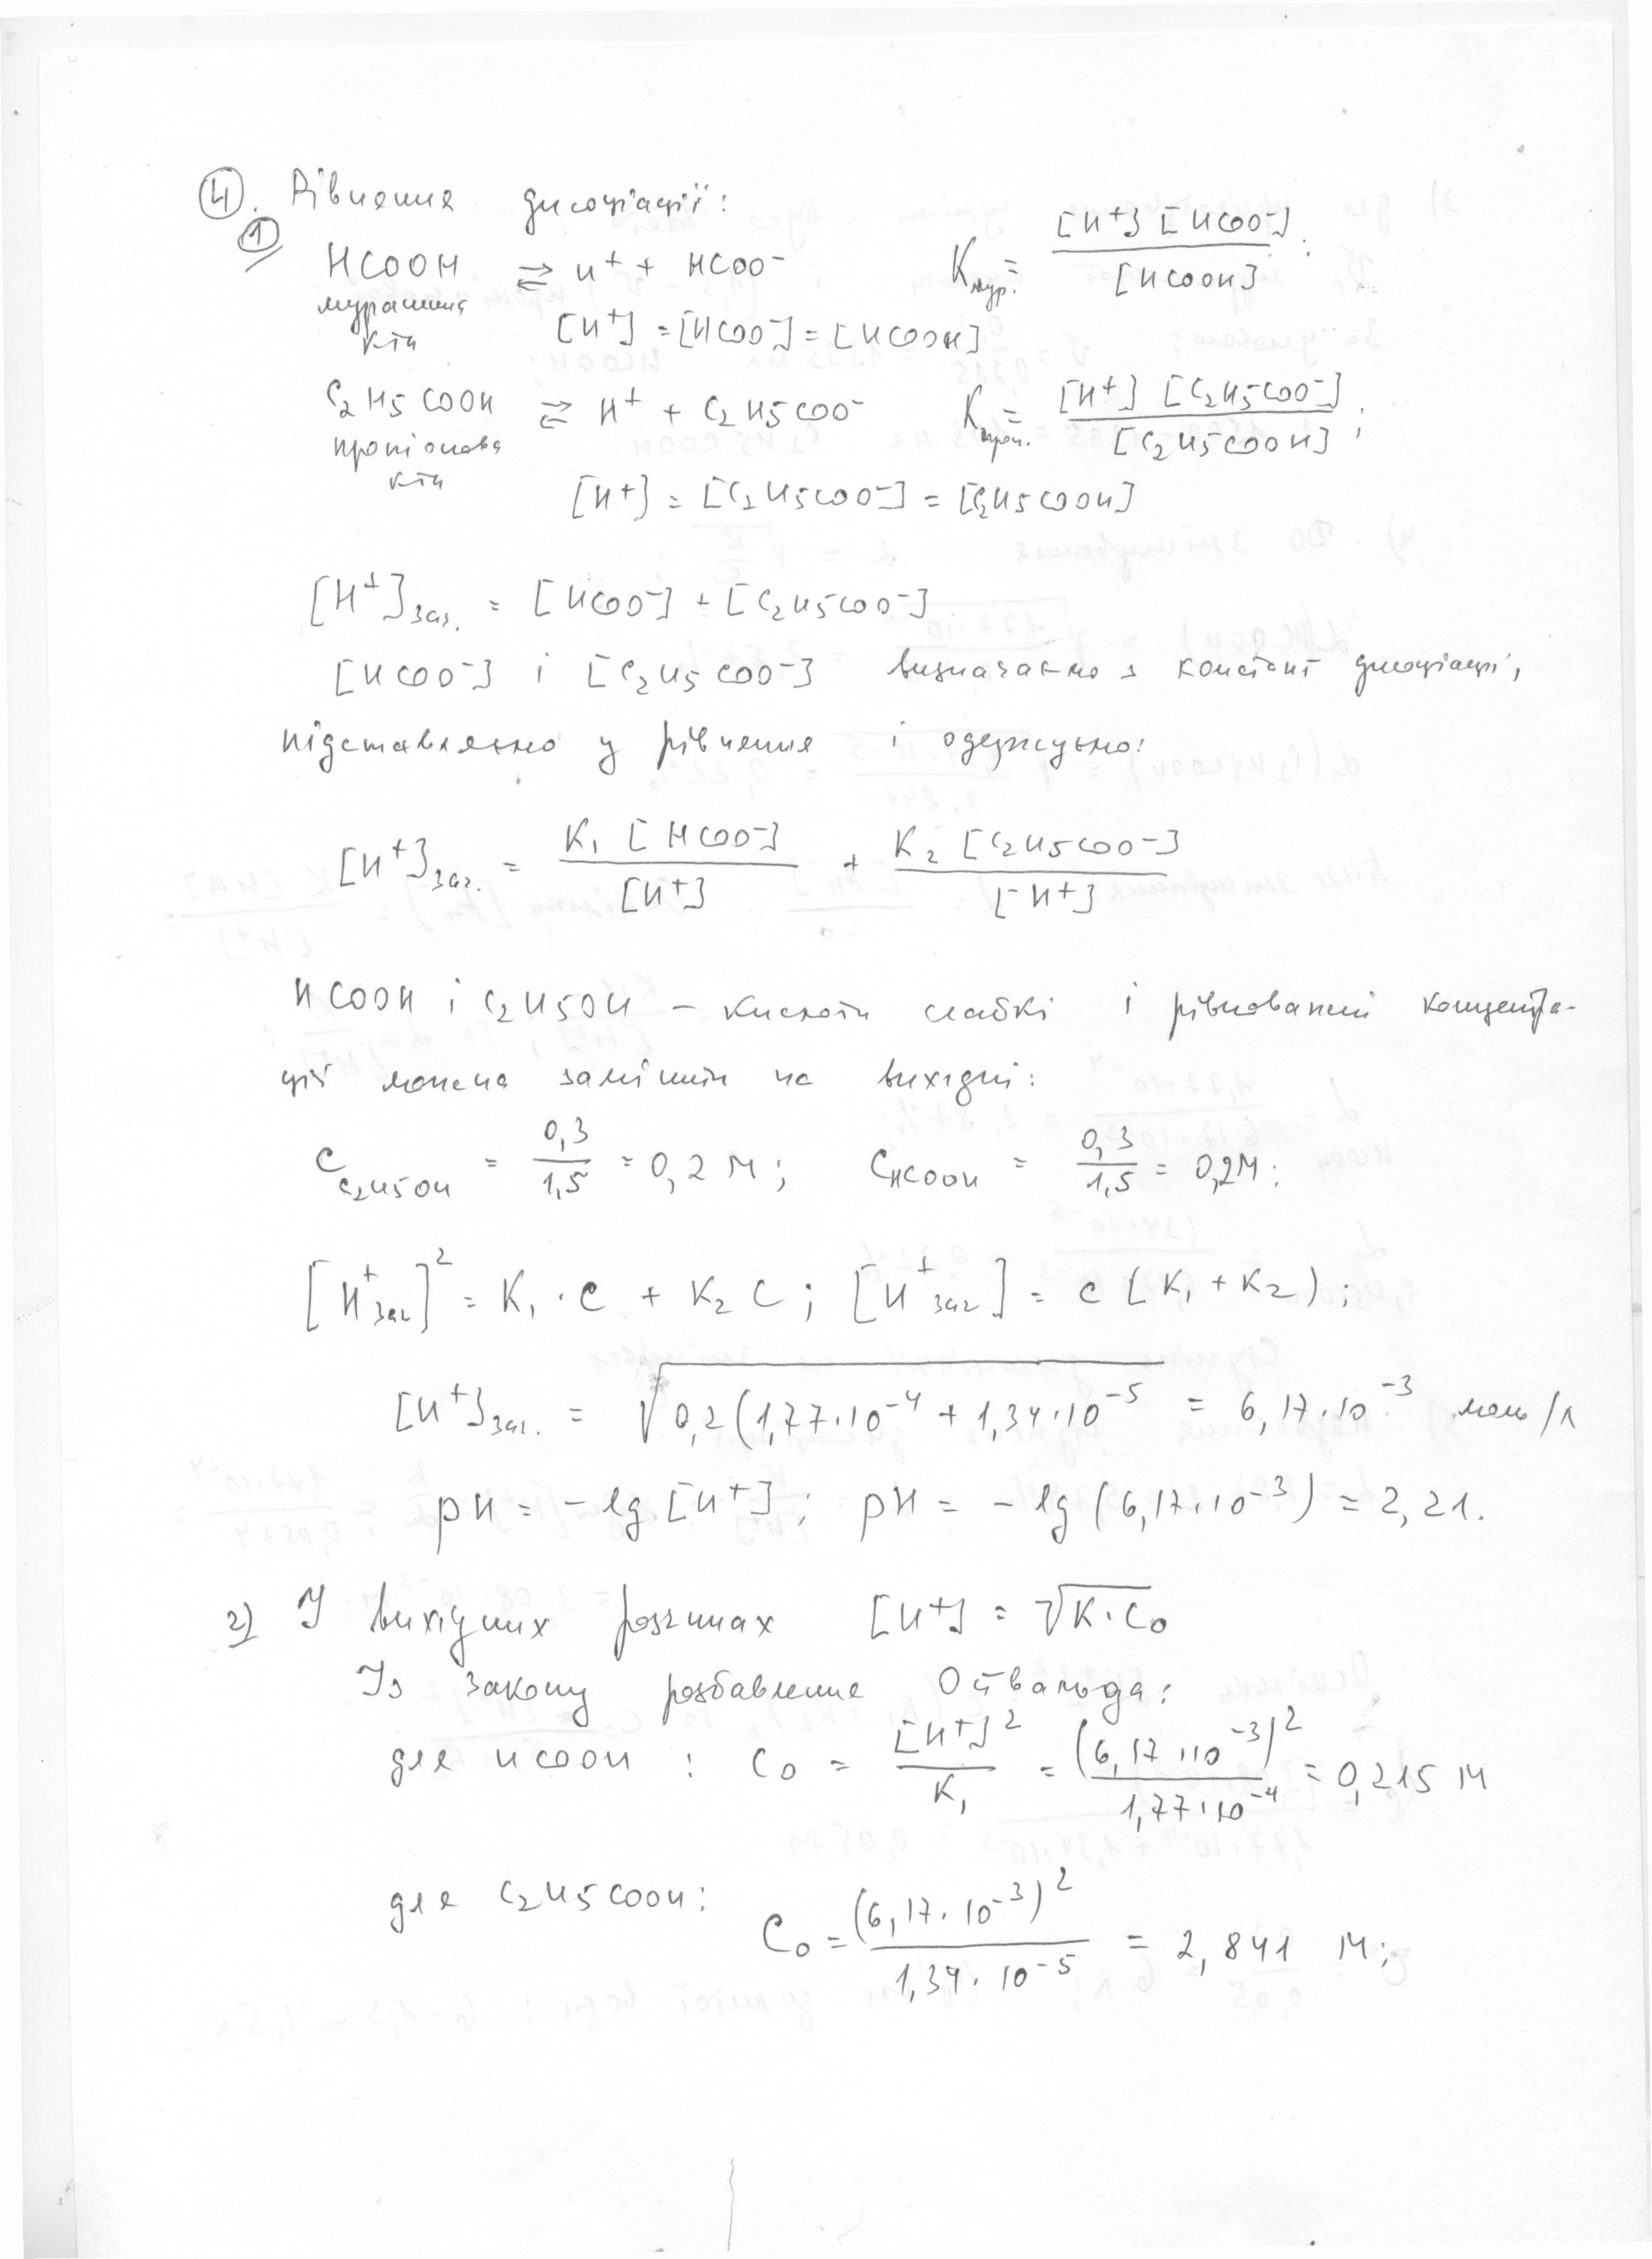 4. Рівняння дисоціації:
1) HCOOH ⇄ H⁺ + HCOO⁻ Kмур. = [H⁺][HCOO⁻] / [HCOOH];
мурашина
к-та
[H⁺] = [HCOO⁻] = [HCOOH]
C₂H₅COOH ⇄ H⁺ + C₂H₅COO⁻ Kпроп. = [H⁺][C₂H₅COO⁻] / [C₂H₅COOH];
пропіонова
к-та
[H⁺] = [C₂H₅COO⁻] = [C₂H₅COOH]
[H⁺]заг. = [HCOO⁻] + [C₂H₅COO⁻]
[HCOO⁻] і [C₂H₅COO⁻] визначаємо з констант дисоціації,
підставляємо у рівняння і одержуємо:
[H⁺]заг. = K₁[HCOO⁻] / [H⁺] + K₂[C₂H₅COO⁻] / [H⁺]
HCOOH і C₂H₅OH – кислоти слабкі і рівноважні концентра-
ції можна замінити на вихідні:
C C₂H₅OH = 0,3 / 1,5 = 0,2 M; C HCOOH = 0,3 / 1,5 = 0,2M;
[H⁺заг]² = K₁·C + K₂C; [H⁺заг] = C(K₁ + K₂);
[H⁺]заг. = √0,2(1,77·10⁻⁴ + 1,34·10⁻⁵ = 6,17·10⁻³ моль/л
pH = -lg[H⁺]; pH = -lg(6,17·10⁻³) = 2,21.
2) У вихідних розчинах [H⁺] = √K·C₀
Із закону розбавлення Оствальда:
для HCOOH: C₀ = [H⁺]² / K₁ = (6,17·10⁻³)² / 1,77·10⁻⁴ = 0,215 M
для C₂H₅COOH: C₀ = (6,17·10⁻³)² / 1,34·10⁻⁵ = 2,841 M;